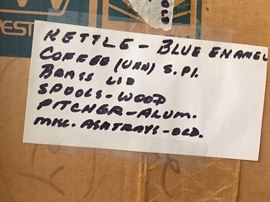 KETTLE - BLUE ENAMEL
COFFEE (URN) S. Pl.
BRASS LID
SPOOLS - WOOD
PITCHER - ALUM.
MISC. ASHTRAYS - OLD.